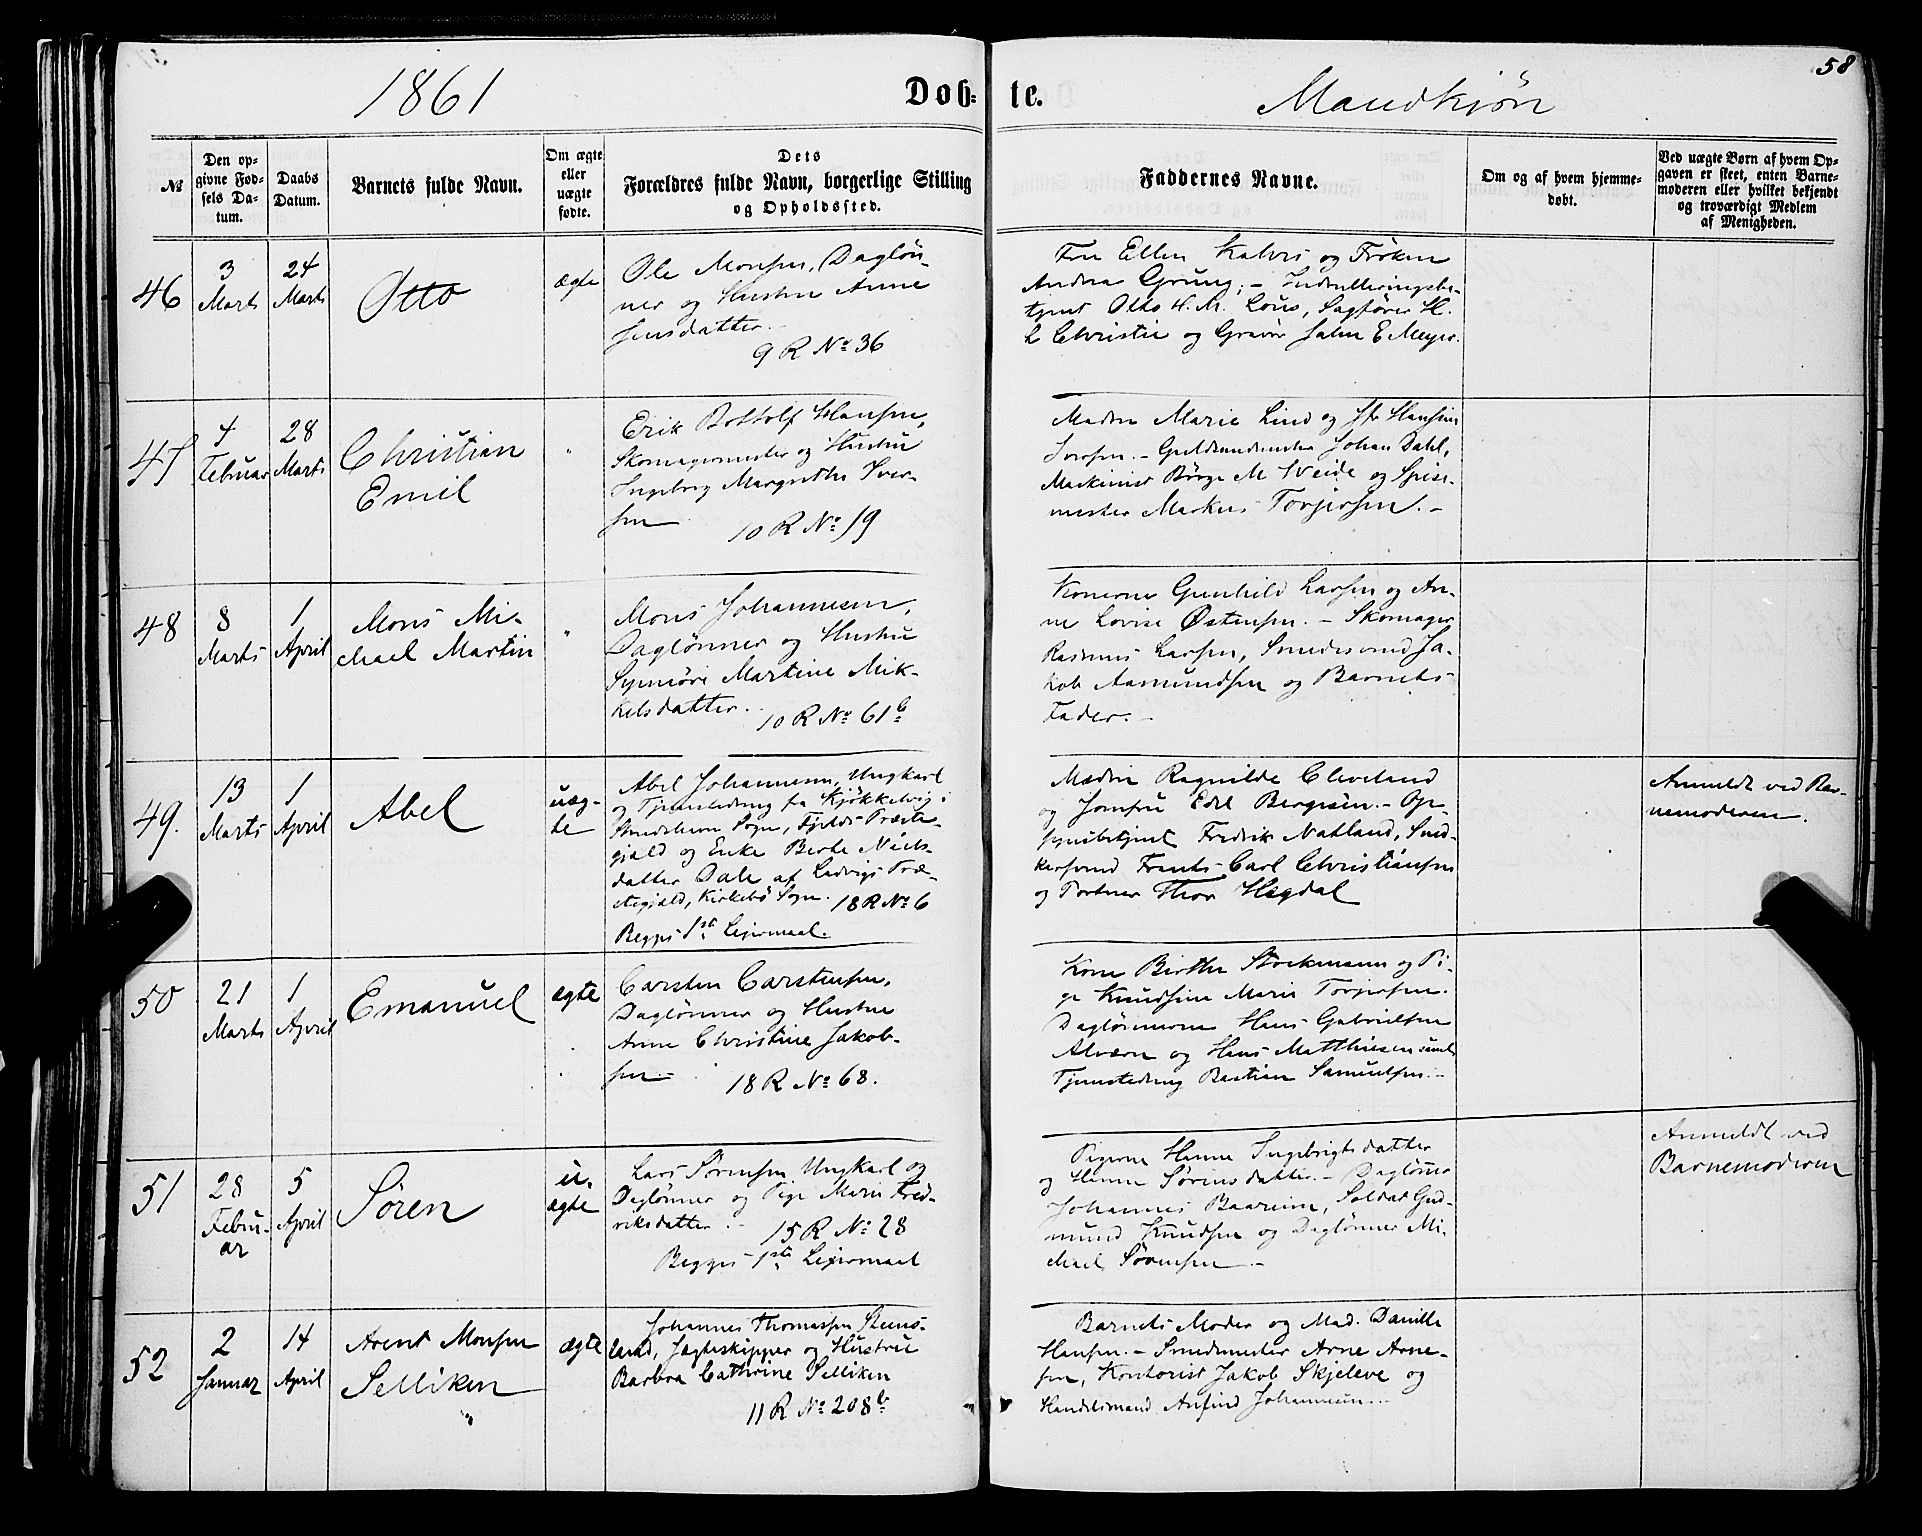 58
1861
Døb-te.
Mandkjøn
№
Den op-
givne Fød-
sels Da-
tum.
Daabs
Datum.
Barnets fulde Navn.
Om ægte
eller
uægte
fødte.
Dets
Forældres fulde Navn, borgerlige Stilling
og Opholdssted.
Faddernes Navne.
Om og af hvem hjemme-
døbt.
Ved uægte Børn af hvem Op-
gaven er skeet, enten Barne-
moderen eller hvilket bekjendt
og troværdigt Medlem
af Menigheden.
46
3
Marts
24
Marts
Otto
ægte
Ole Monsen, Dagløn-
ner og Hustru Anne
Jensdatter.
9 R No 36
Fru Ellen Kahrs og Frøken
Andrea Grung; - Indrulleringsbe-
tjent Otto H. M. Lous, Sagfører H.
L Christie og Gravør John E Meyer.
47
4
Februar
28
Marts
Christian
Emil
"
Erik Bottolf Hansen,
Skomagermester og Hustru
Ingeborg Margrethe Iver-
sen
10 R No 19
Madm Marie Lind og Hansine
Iversen. - Guldsmedmester Johan Dahl,
Maskinist Børge M Weide og Spise-
mester Markus Torjersen. -
48
8
Marts
1
April
Mons Mi-
chael Martin
"
Mons Johannesen,
Daglønner og Hustru
Synnøve Martine Mik-
kelsdatter.
10 R No 61 b
Konerne Gunhild Larsen og An-
ne Lovise Østensen. - Skomager
Rasmus Larsen, Smedesvend Ja-
kob Aamundsen og Barnets
Fader. -
49.
13
Marts
1
April
Abel
uæg-
te
Abel Johannesen, Ungkarl
og Tjenestedreng fra Kjøkkelvig i
Sundshavn Sogn, Fjelds Præste-
gjeld og Enke Berte Niels-
datter Dale af Ladvigs Præ-
stegjeld, Kirkebø Sogn. 18 R No 6
Begges 1ste Leiermaal.
Madm Ragnilde Cleveland
og Jomfru Edel Bergsøn. - Op-
synsbetjent Fredrik Natland, Sned-
kersvend Frents Carl Christiansen
og Portner Thor Hegdal
Anmeldt ved Bar-
nemoderen.
50
21
Marts
1
April
Emanuel
ægte
Carsten Carstensen,
Daglønner og Hustru
Anne Christine Jakob-
sen. -
18 R No 68.
Kone Birthe Stockmann og Pi-
ge Knudsine Marie Torjersen.
Daglønnerne Hans Gabrielsen
Alværn og Hans Matthiesen samt
Tjenestedreng Bastian Samuelsen. -
51
28
Febru-
ar
5
April
Søren
u-
ægte
Lars Sørensen Ungkarl og
Daglønner og Pige Marie Fred-
riksdatter. -
15 R No 28
Begges 1ste Leiermaal
Pigerne Hanne Ingebrigtsdatter
og Hanne Sørensdatter. - Daglønner
Johannes Baarsen, Soldat Gud-
mund Knudsen og Daglønner Mi-
chael Sørensen. -
Anmeldt ved
Barnemoderen
52
2
Januar
14
April
Arent Monsen
Selliken
ægte
Johannes Thomassen Stens-
land, Jægteskipper og Hustrue
Barbra Cathrine Selliken
11 R No 208 b
Barnets Moder og Mad. Danille
Hansen. - Smedmester Arne Arne-
sen, Kontorist Jakob Skjeleve og
Handelsmand Anfind Johannesen. -